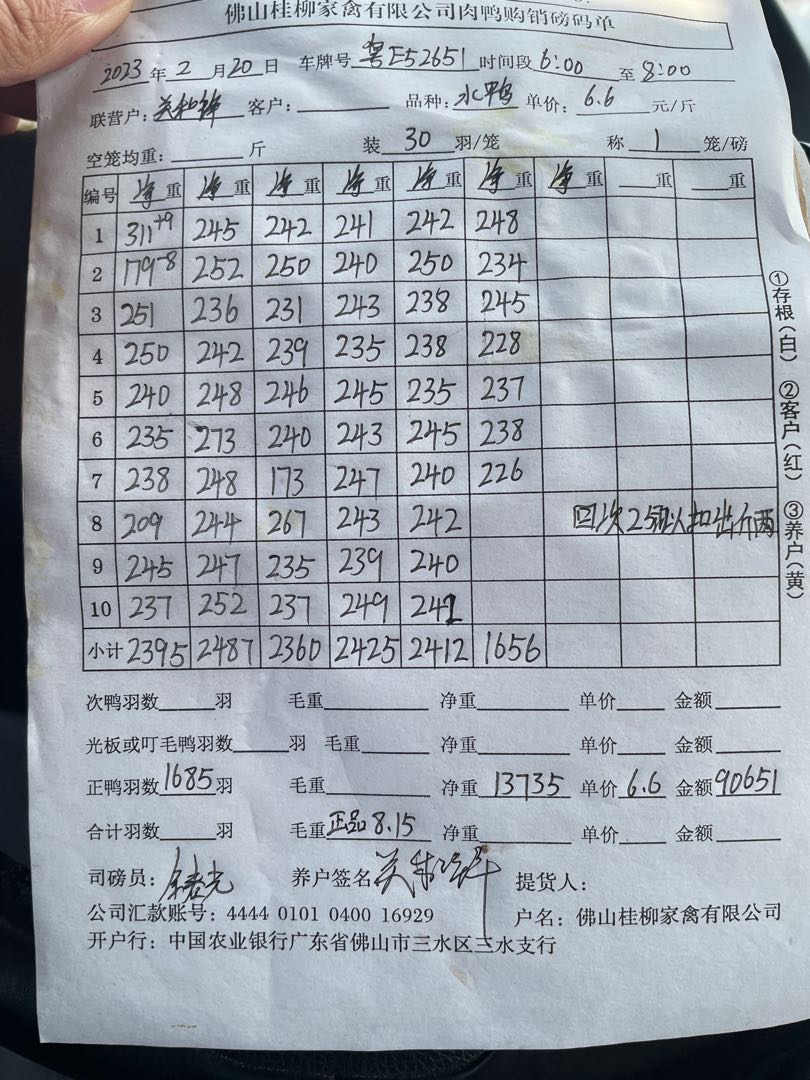 佛山桂柳家禽有限公司肉鸭购销磅码单
2023年2月20日 车牌号粤E52651 时间段6:00至8:00
联营户: 客户: 品种:水鸭 单价:6.6元/斤
空笼均重: 斤 装30羽/笼 称1笼/磅
编号 净重 净重 净重 净重 净重 净重 净重 重 重
1 311+9 245 242 241 242 248
2 179-8 252 250 240 250 234
3 251 236 231 243 238 245
4 250 242 239 235 238 228
5 240 248 246 245 235 237
6 235 273 240 243 245 238
7 238 248 173 247 240 226
8 209 244 267 243 242
9 245 247 235 239 240
10 237 252 237 249 242
小计 2395 2487 2360 2425 2412 1656
次鸭羽数 羽 毛重 净重 单价 金额
光板或叮毛鸭羽数 羽 毛重 净重 单价 金额
正鸭羽数1685羽 毛重 净重13735 单价6.6 金额90651
合计羽数 羽 毛重正品8.15 净重 单价 金额
司磅员: 养户签名 提货人:
公司汇款账号: 4444 0101 0400 16929 户名: 佛山桂柳家禽有限公司
开户行: 中国农业银行广东省佛山市三水区三水支行
①存根(白) ②客户(红) ③养户(黄)